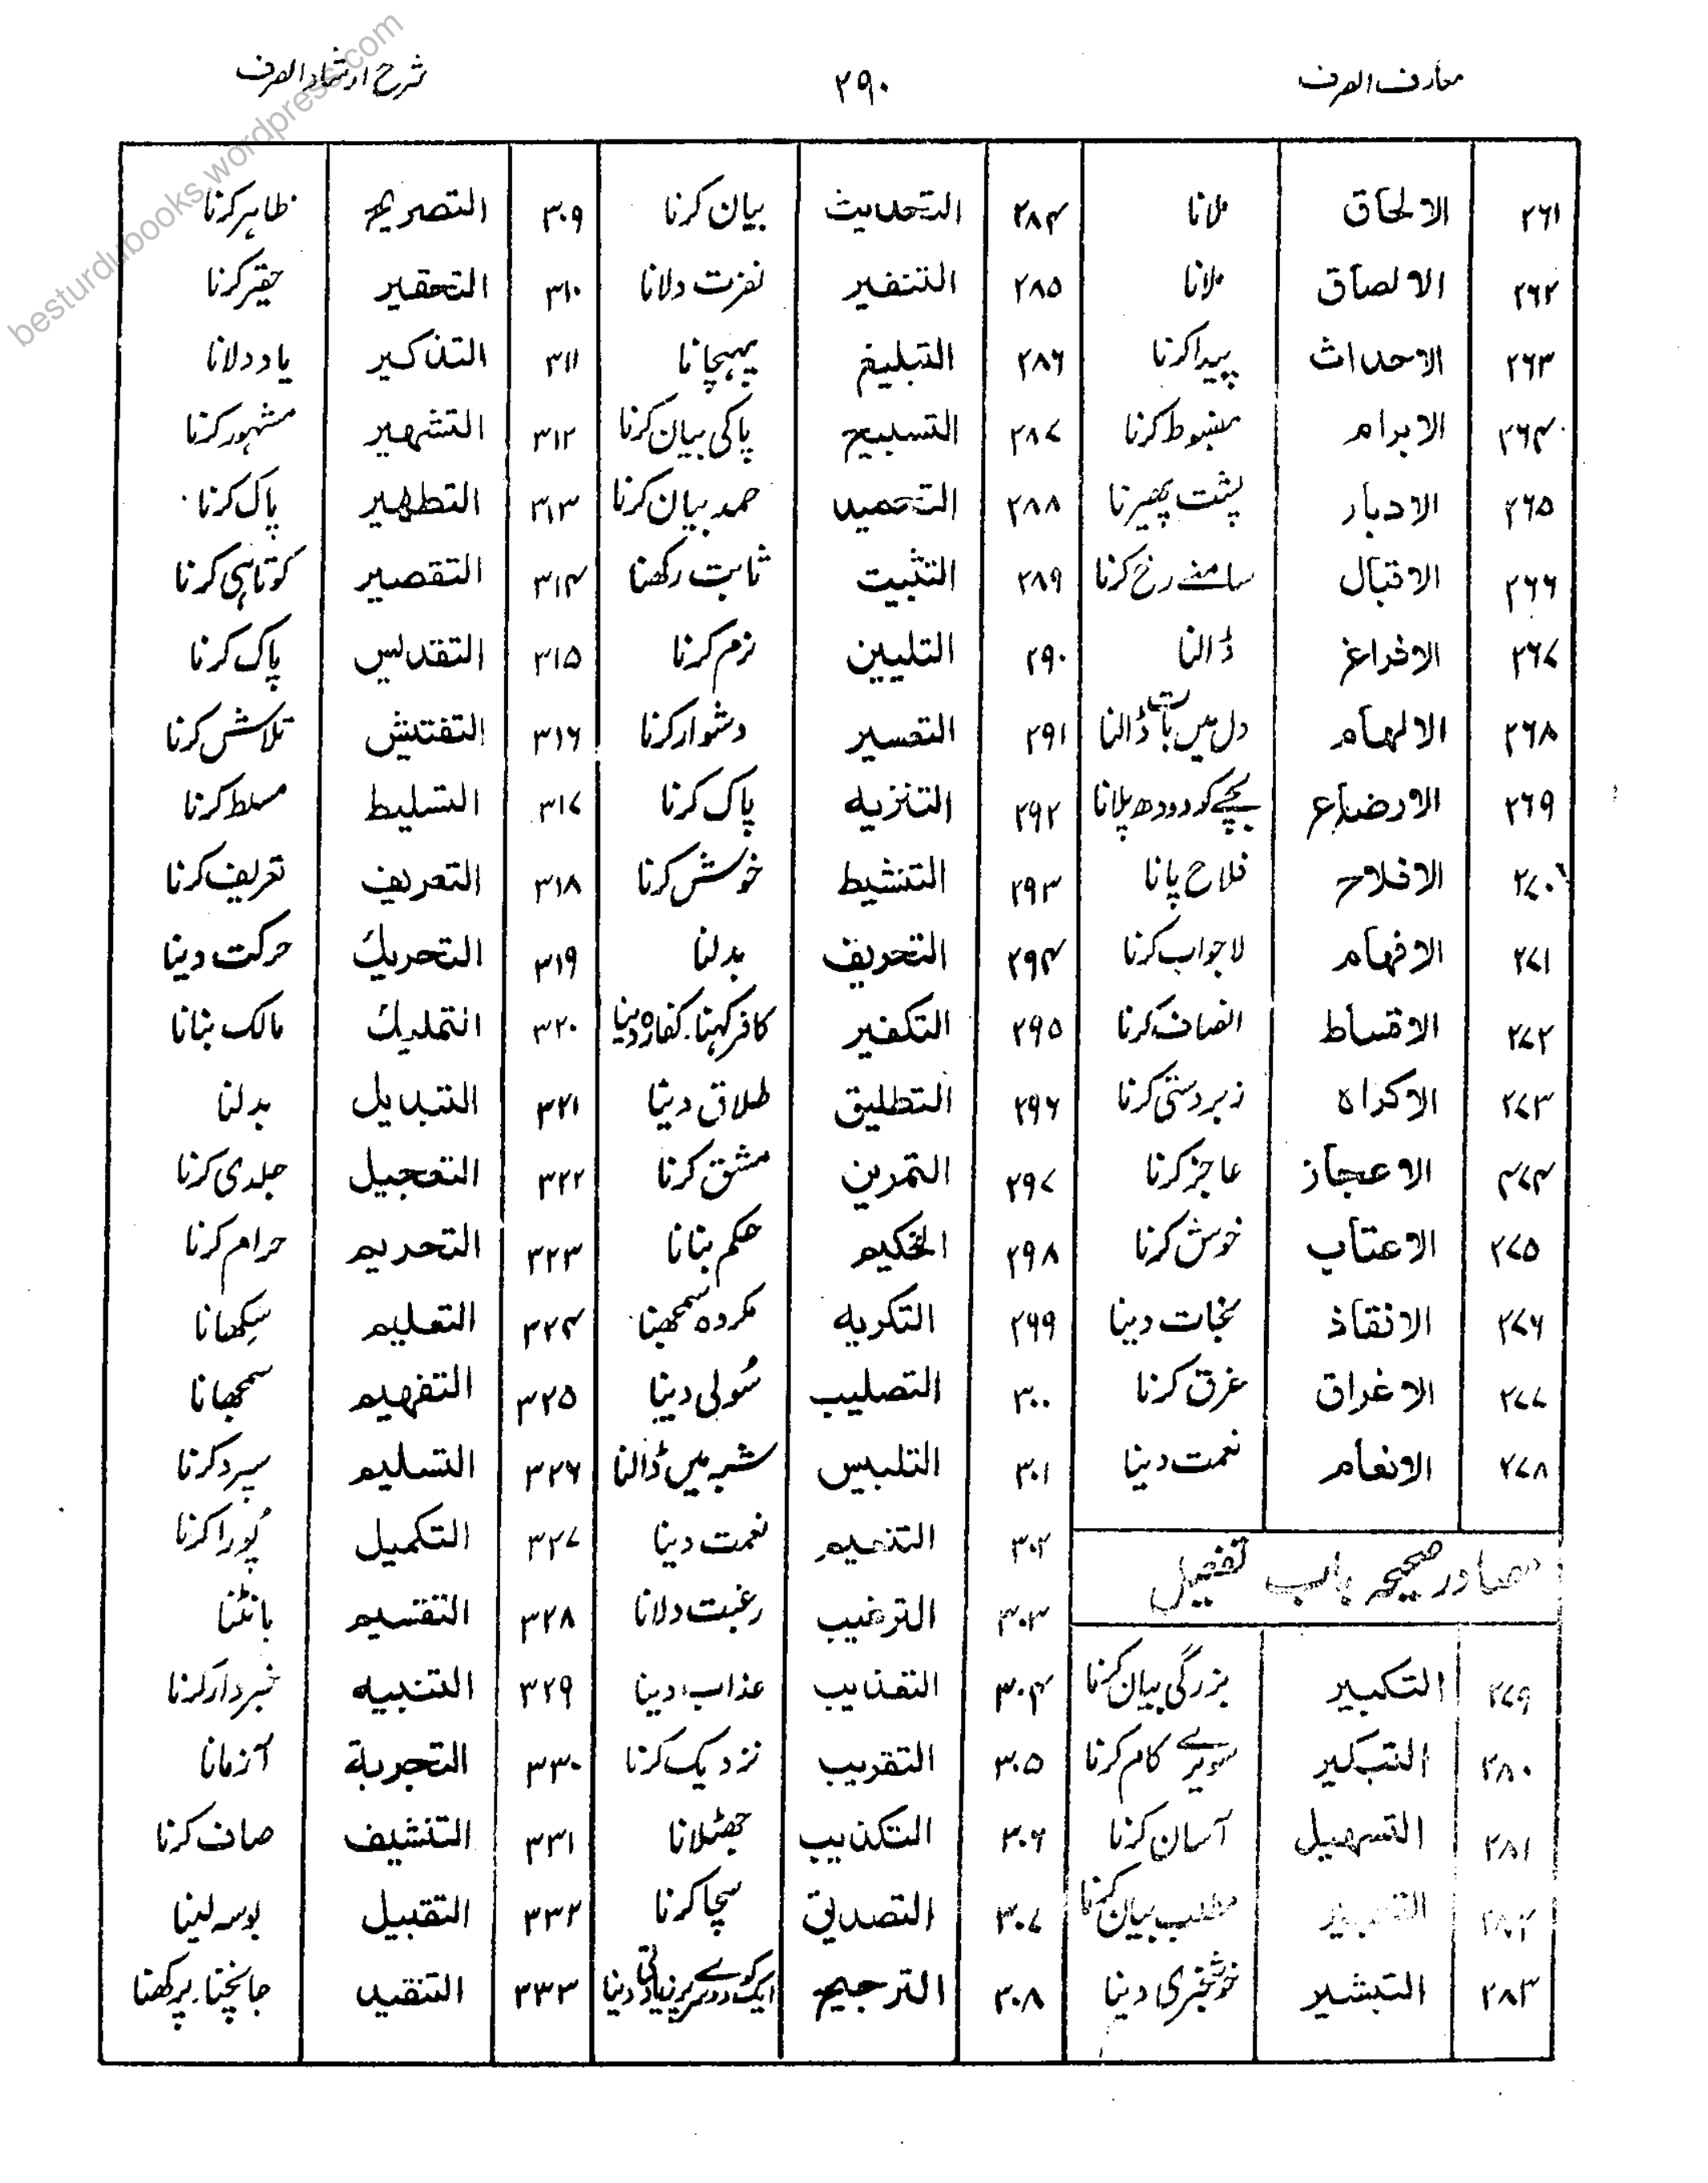 معارف الصرف ۲۹۰ شرح ارشاد الصرف
۲۶۱ الالحاق ملانا ۲۸۴ التحديث بیان کرنا ۳۰۹ التصريح ظاہر کرنا
۲۶۲ الالصاق ملانا ۲۸۵ التنفير نفرت دلانا ۳۱۰ التحقير حقیر کرنا
۲۶۳ الاحداث پیدا کرنا ۲۸۶ التبليغ پہنچانا ۳۱۱ التذكير یاد دلانا
۲۶۴ الابرام مضبوط کرنا ۲۸۷ التسبيح پاکی بیان کرنا ۳۱۲ التشهير مشہور کرنا
۲۶۵ الادبار پشت پھیرنا ۲۸۸ التحميد حمد بیان کرنا ۳۱۳ التطهير پاک کرنا
۲۶۶ الاقبال سامنے رخ کرنا ۲۸۹ التثبيت ثابت رکھنا ۳۱۴ التقصير کوتاہی کرنا
۲۶۷ الافراغ ڈالنا ۲۹۰ التليين نرم کرنا ۳۱۵ التقديس پاک کرنا
۲۶۸ الالهام دل میں بات ڈالنا ۲۹۱ التعسير دشوار کرنا ۳۱۶ التفتيش تلاش کرنا
۲۶۹ الارضاع بچے کو دودھ پلانا ۲۹۲ التنزيه پاک کرنا ۳۱۷ التسليط مسلط کرنا
۲۷۰ الافلاح فلاح پانا ۲۹۳ التنشيط خوش کرنا ۳۱۸ التعريف تعریف کرنا
۲۷۱ الافهام لاجواب کرنا ۲۹۴ التحريف بدلنا ۳۱۹ التحريك حرکت دینا
۲۷۲ الاقساط انصاف کرنا ۲۹۵ التكفير کافر کہنا۔ کفارہ دینا ۳۲۰ التمليك مالک بنانا
۲۷۳ الاكراه زبردستی کرنا ۲۹۶ التطليق طلاق دینا ۳۲۱ التبديل بدلنا
۲۷۴ الاعجاز عاجز کرنا ۲۹۷ التمرين مشق کرنا ۳۲۲ التعجيل جلدی کرنا
۲۷۵ الاعتاب خوش کرنا ۲۹۸ التحكيم حکم بنانا ۳۲۳ التحريم حرام کرنا
۲۷۶ الانقاذ نجات دینا ۲۹۹ التكريه مکروہ سمجھنا ۳۲۴ التعليم سکھانا
۲۷۷ الاغراق غرق کرنا ۳۰۰ التصليب سُولی دینا ۳۲۵ التفهيم سمجھانا
۲۷۸ الانعام نعمت دینا ۳۰۱ التلبيس شبہ میں ڈالنا ۳۲۶ التسليم سپرد کرنا
مصادر صحیحہ باب تفعیل ۳۰۲ التنعيم نعمت دینا ۳۲۷ التكميل پُورا کرنا
۳۰۳ الترغيب رغبت دلانا ۳۲۸ التقسيم بانٹنا
۲۷۹ التكبير بزرگی بیان کرنا ۳۰۴ التعذيب عذاب دینا ۳۲۹ التنبيه خبردار کرنا
۲۸۰ التبكير سویرے کام کرنا ۳۰۵ التقريب نزدیک کرنا ۳۳۰ التجربة آزمانا
۲۸۱ التسهيل آسان کرنا ۳۰۶ التكذيب جھٹلانا ۳۳۱ التنشيف صاف کرنا
۲۸۲ مطلب بیان کرنا ۳۰۷ التصديق سچا کرنا ۳۳۲ التقبيل بوسہ لینا
۲۸۳ التبشير خوشخبری دینا ۳۰۸ الترجيح ایک کو دوسرے پر زیادتی دینا ۳۳۳ التنقيد جانچنا۔ پرکھنا
besturdubooks.wordpress.com